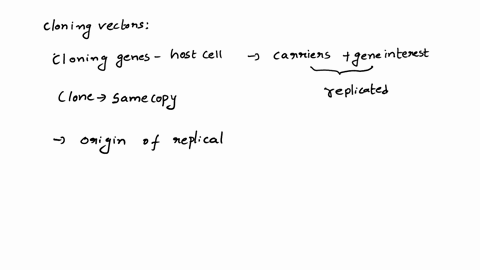 cloning vectors:
cloning genes - host cell → carriers + gene interest
replicated
Clone → same copy
→ origin of replical